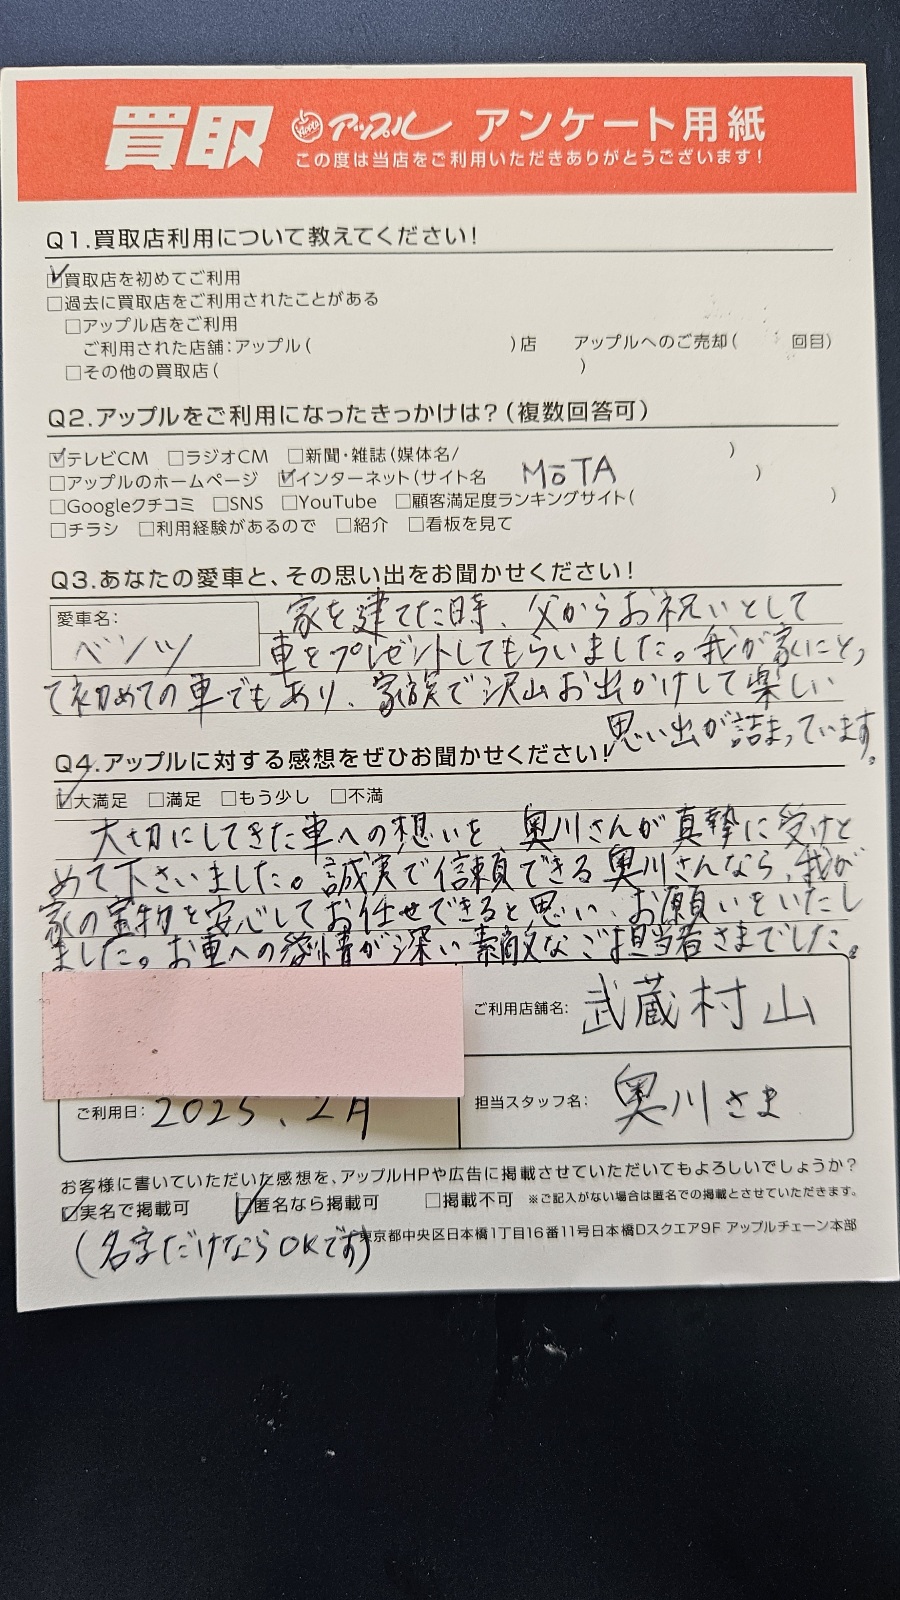 買取 アップル アンケート用紙
この度は当店をご利用いただきありがとうございます!
Q1.買取店利用について教えてください!
☑買取店を初めてご利用
□過去に買取店をご利用されたことがある
□アップル店をご利用
ご利用された店舗:アップル( )店 アップルへのご売却( 回目)
□その他の買取店( )
Q2.アップルをご利用になったきっかけは?(複数回答可)
☑テレビCM □ラジオCM □新聞・雑誌(媒体名/ )
□アップルのホームページ ☑インターネット(サイト名 MōTA )
□Googleクチコミ □SNS □YouTube □顧客満足度ランキングサイト( )
□チラシ □利用経験があるので □紹介 □看板を見て
Q3.あなたの愛車と、その思い出をお聞かせください!
愛車名:
ベンツ
家を建てた時、父からお祝いとして
車をプレゼントしてもらいました。我が家にとっ
て初めての車でもあり、家族で沢山お出かけして楽しい
思い出が詰まっています。
Q4.アップルに対する感想をぜひお聞かせください!
☑大満足 □満足 □もう少し □不満
大切にしてきた車への想いを 奥川さんが真摯に受けと
めて下さいました。誠実で信頼できる奥川さんなら、我が
家の宝物を安心してお任せできると思い、お願いをいたし
ました。お車への愛情が深い素敵なご担当者さまでした。
ご利用店舗名: 武蔵村山
ご利用日: 2025、2月
担当スタッフ名: 奥川さま
お客様に書いていただいた感想を、アップルHPや広告に掲載させていただいてもよろしいでしょうか?
☑実名で掲載可 ☑匿名なら掲載可 □掲載不可 ※ご記入がない場合は匿名での掲載とさせていただきます。
(名字だけならOKです)
東京都中央区日本橋1丁目16番11号日本橋Dスクエア9F アップルチェーン本部